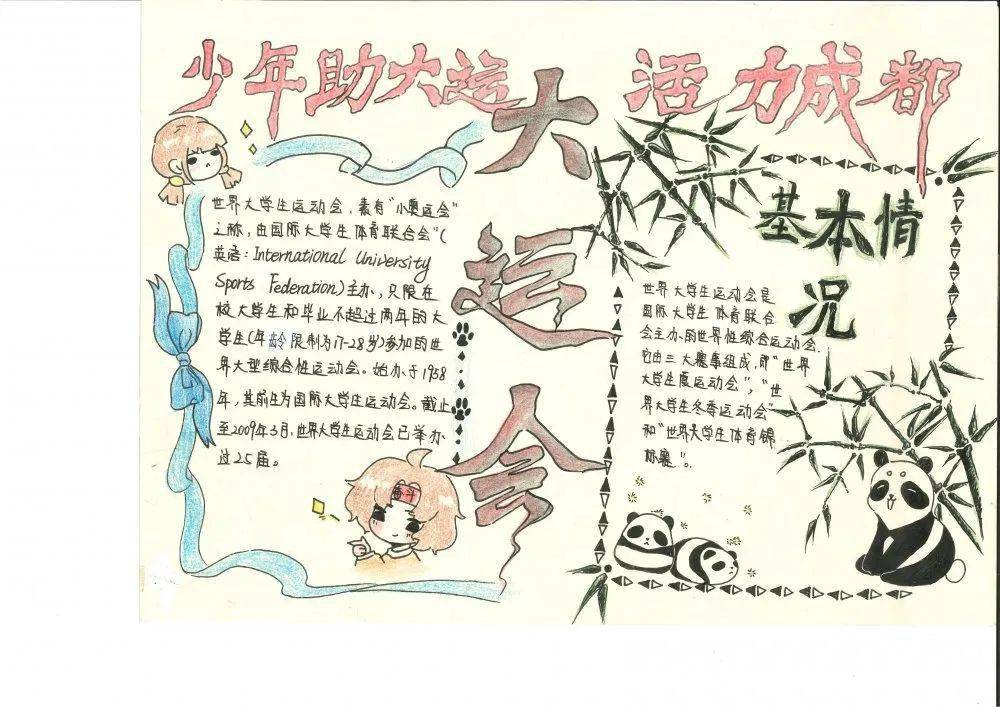 少年助大运 活力成都
大运会
世界大学生运动会，素有"小奥运会"
之称，由国际大学生体育联合会"(
英语：International University
Sports Federation)主办，只限在
校大学生和毕业不超过两年的大
学生(年龄限制为17-28岁)参加的世
界大型综合性运动会。始办于1958
年，其前生为国际大学生运动会。截止
至2009年3月，世界大学生运动会已举办
过25届。
奋斗
基本情
况
世界大学生运动会是
国际大学生体育联合
会主办的世界性综合运动会.
它由三大赛事组成，即"世界
大学生夏运动会"，"世
界大学生冬季运动会"
和"世界大学生体育锦
标赛"。